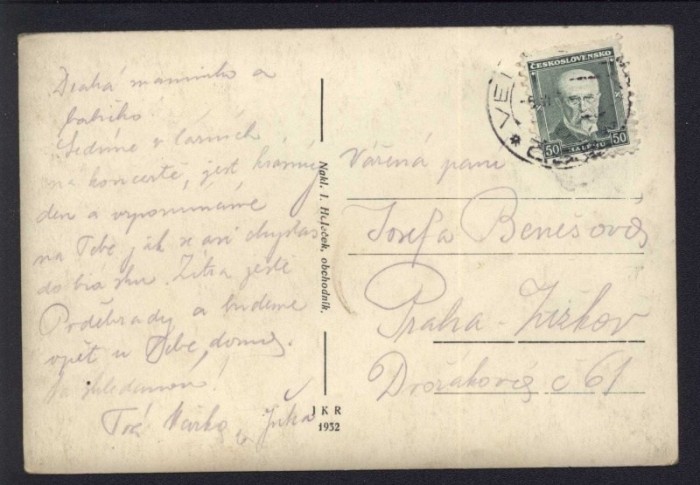 Drahá maminko a
babičko
Sedíme v lázních
na koncertě, jest krásný
den a vzpomínáme
na Tebe jak se asi chystáš
do biásku. Zítra ještě
Poděbrady a budeme
opět u Tebe, doma.
Na shledanou!
Tvá Mařka
Nakl. I. Holeček, obchodník.
JKR
1932
ČESKOSLOVENSKO
50 HALÉŘŮ 50
VEL
Vážená paní
Josefa Benešová
Praha-Žižkov
Dvořákova č 61